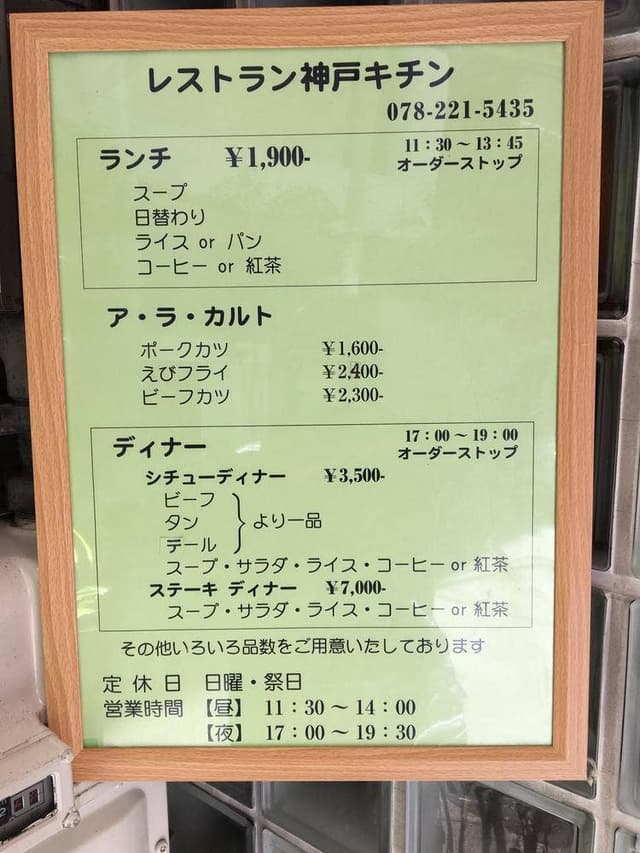 レストラン神戸キチン
078-221-5435
ランチ ¥1,900- 11:30～13:45
オーダーストップ
スープ
日替わり
ライス or パン
コーヒー or 紅茶
ア・ラ・カルト
ポークカツ ¥1,600-
えびフライ ¥2,400-
ビーフカツ ¥2,300-
ディナー 17:00～19:00
オーダーストップ
シチューディナー ¥3,500-
ビーフ
タン より一品
テール
スープ・サラダ・ライス・コーヒー or 紅茶
ステーキ ディナー ¥7,000-
スープ・サラダ・ライス・コーヒー or 紅茶
その他いろいろ品数をご用意いたしております
定休日 日曜・祭日
営業時間 【昼】 11:30～14:00
【夜】 17:00～19:30